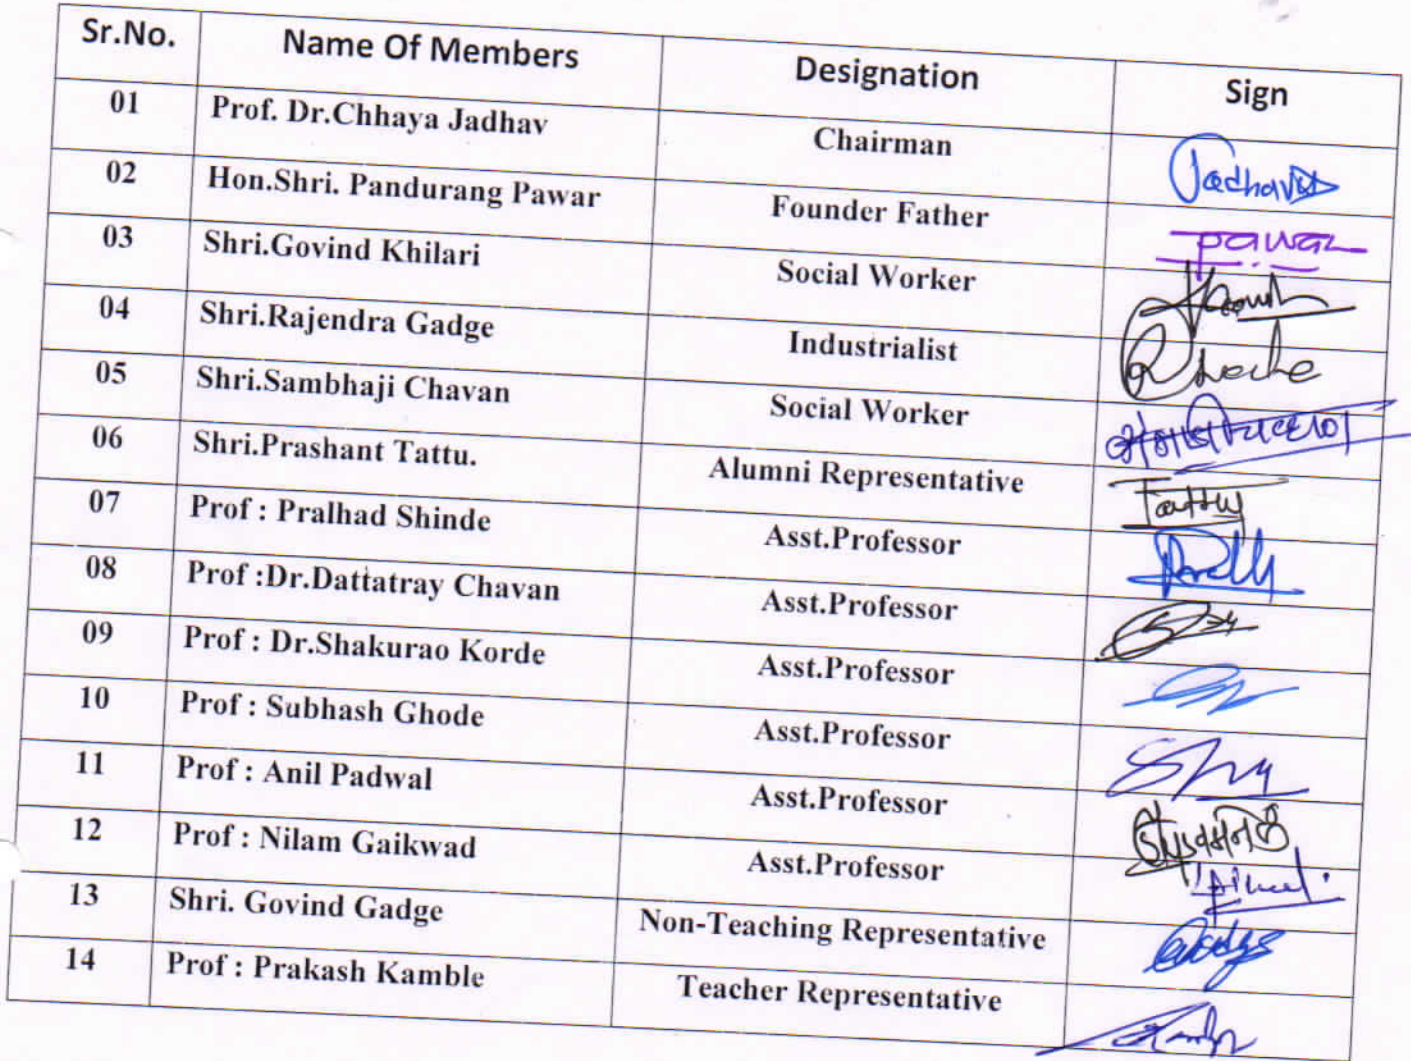 Sr.No. Name Of Members Designation Sign
01 Prof. Dr.Chhaya Jadhav Chairman Jadhav
02 Hon.Shri. Pandurang Pawar Founder Father Pawar
03 Shri.Govind Khilari Social Worker
04 Shri.Rajendra Gadge Industrialist
05 Shri.Sambhaji Chavan Social Worker
06 Shri.Prashant Tattu. Alumni Representative Tattu
07 Prof : Pralhad Shinde Asst.Professor
08 Prof :Dr.Dattatray Chavan Asst.Professor
09 Prof : Dr.Shakurao Korde Asst.Professor
10 Prof : Subhash Ghode Asst.Professor
11 Prof : Anil Padwal Asst.Professor
12 Prof : Nilam Gaikwad Asst.Professor
13 Shri. Govind Gadge Non-Teaching Representative
14 Prof : Prakash Kamble Teacher Representative